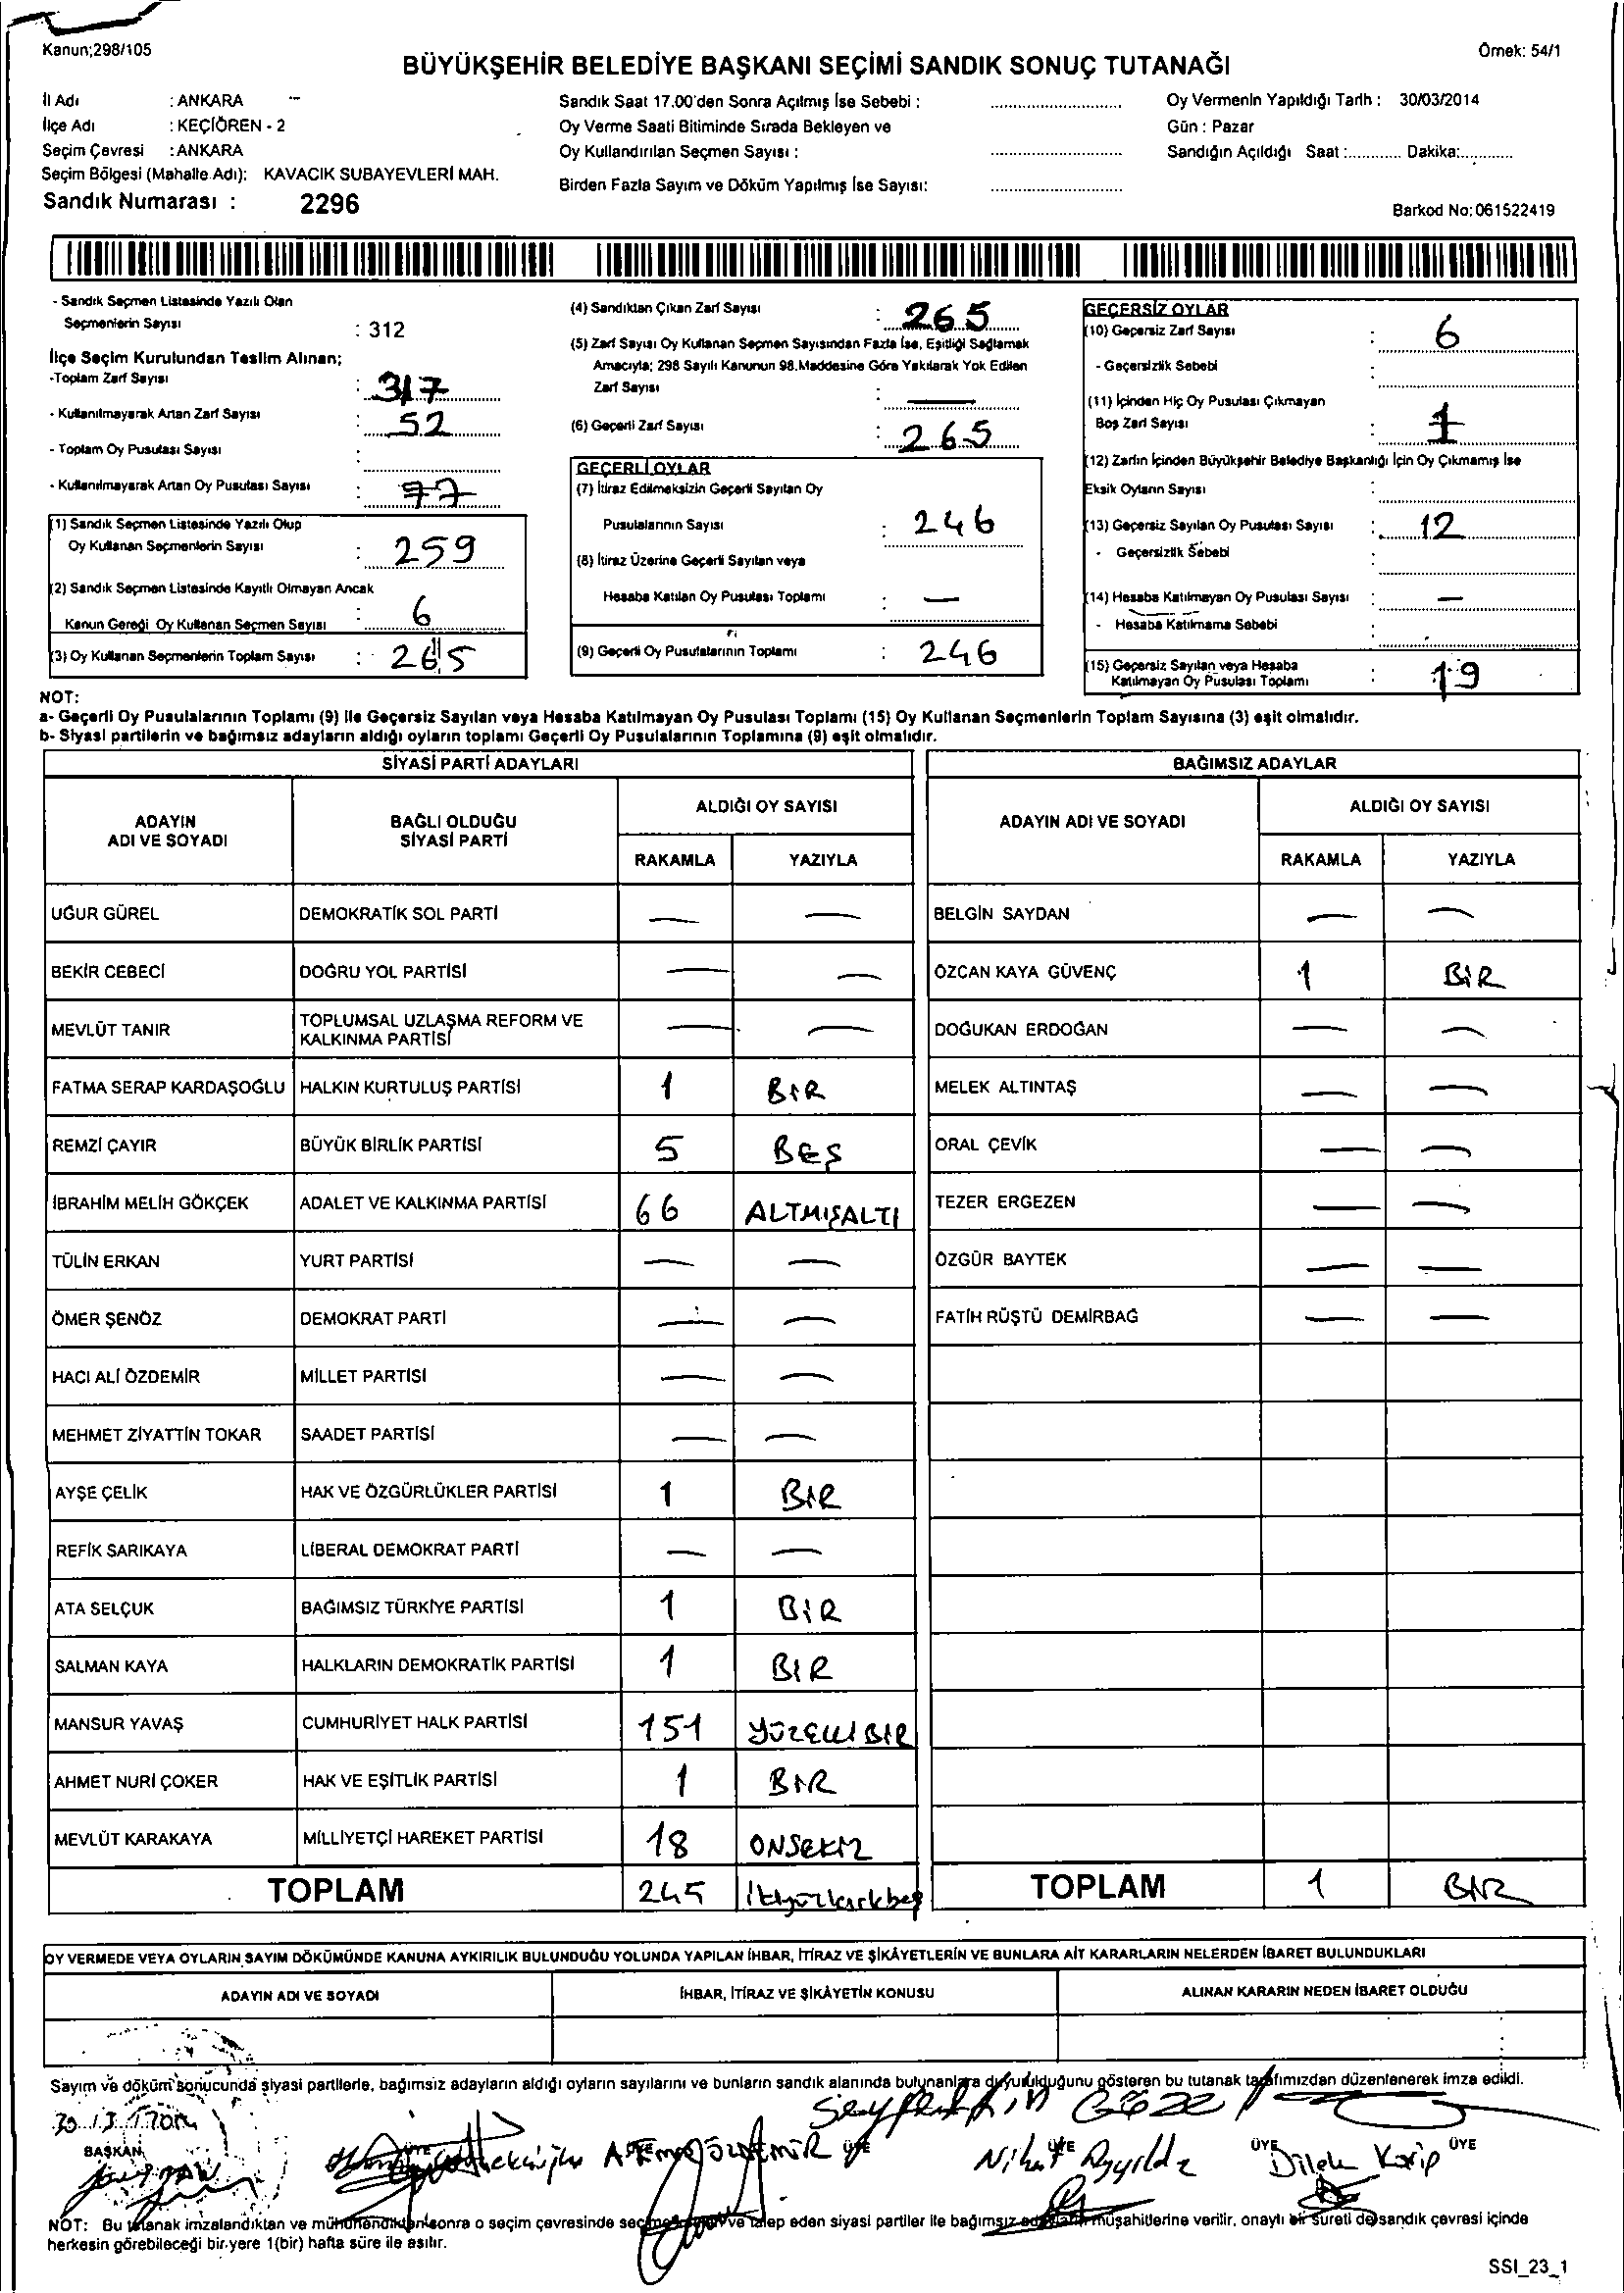 Kanun;298/105
Örnek: 54/1
BÜYÜKŞEHİR BELEDİYE BAŞKANI SEÇİMİ SANDIK SONUÇ TUTANAĞI
İl Adı : ANKARA
İlçe Adı : KEÇİÖREN - 2
Seçim Çevresi : ANKARA
Seçim Bölgesi (Mahalle Adı): KAVACIK SUBAYEVLERİ MAH.
Sandık Numarası : 2296
Sandık Saat 17.00'den Sonra Açılmış İse Sebebi :
Oy Verme Saati Bitiminde Sırada Bekleyen ve
Oy Kullandırılan Seçmen Sayısı :
Birden Fazla Sayım ve Döküm Yapılmış İse Sayısı:
Oy Vermenin Yapıldığı Tarih : 30/03/2014
Gün : Pazar
Sandığın Açıldığı Saat :............ Dakika:............
Barkod No: 061522419
- Sandık Seçmen Listesinde Yazılı Olan
Seçmenlerin Sayısı : 312
İlçe Seçim Kurulundan Teslim Alınan;
-Toplam Zarf Sayısı : 317
- Kullanılmayarak Artan Zarf Sayısı : 52
- Toplam Oy Pusulası Sayısı :
- Kullanılmayarak Artan Oy Pusulası Sayısı : 77
(1) Sandık Seçmen Listesinde Yazılı Olup
Oy Kullanan Seçmenlerin Sayısı : 259
(2) Sandık Seçmen Listesinde Kayıtlı Olmayan Ancak
Kanun Gereği Oy Kullanan Seçmen Sayısı : 6
(3) Oy Kullanan Seçmenlerin Toplam Sayısı : 265
(4) Sandıktan Çıkan Zarf Sayısı : 265
(5) Zarf Sayısı Oy Kullanan Seçmen Sayısından Fazla İse, Eşitliği Sağlamak
Amacıyla; 298 Sayılı Kanunun 98.Maddesine Göre Yakılarak Yok Edilen
Zarf Sayısı : —
(6) Geçerli Zarf Sayısı : 265
GEÇERLİ OYLAR
(7) İtiraz Edilmeksizin Geçerli Sayılan Oy
Pusulalarının Sayısı : 246
(8) İtiraz Üzerine Geçerli Sayılan veya
Hesaba Katılan Oy Pusulası Toplamı : —
(9) Geçerli Oy Pusulalarının Toplamı : 246
GEÇERSİZ OYLAR
(10) Geçersiz Zarf Sayısı : 6
- Geçersizlik Sebebi :
(11) İçinden Hiç Oy Pusulası Çıkmayan
Boş Zarf Sayısı : 1
(12) Zarfın İçinden Büyükşehir Belediye Başkanlığı İçin Oy Çıkmamış İse
Eksik Oyların Sayısı :
(13) Geçersiz Sayılan Oy Pusulası Sayısı : 12
- Geçersizlik Sebebi :
(14) Hesaba Katılmayan Oy Pusulası Sayısı : —
- Hesaba Katılmama Sebebi :
(15) Geçersiz Sayılan veya Hesaba
Katılmayan Oy Pusulası Toplamı : 19
NOT:
a- Geçerli Oy Pusulalarının Toplamı (9) İle Geçersiz Sayılan veya Hesaba Katılmayan Oy Pusulası Toplamı (15) Oy Kullanan Seçmenlerin Toplam Sayısına (3) eşit olmalıdır.
b- Siyasi partilerin ve bağımsız adayların aldığı oyların toplamı Geçerli Oy Pusulalarının Toplamına (9) eşit olmalıdır.
SİYASİ PARTİ ADAYLARI
ADAYIN ADI VE SOYADI BAĞLI OLDUĞU SİYASİ PARTİ ALDIĞI OY SAYISI
RAKAMLA YAZIYLA
UĞUR GÜREL DEMOKRATİK SOL PARTİ — —
BEKİR CEBECİ DOĞRU YOL PARTİSİ — —
MEVLÜT TANIR TOPLUMSAL UZLAŞMA REFORM VE KALKINMA PARTİSİ — —
FATMA SERAP KARDAŞOĞLU HALKIN KURTULUŞ PARTİSİ 1 BİR
REMZİ ÇAYIR BÜYÜK BİRLİK PARTİSİ 5 BEŞ
İBRAHİM MELİH GÖKÇEK ADALET VE KALKINMA PARTİSİ 66 ALTMIŞALTI
TÜLİN ERKAN YURT PARTİSİ — —
ÖMER ŞENÖZ DEMOKRAT PARTİ — —
HACI ALİ ÖZDEMİR MİLLET PARTİSİ — —
MEHMET ZİYATTİN TOKAR SAADET PARTİSİ — —
AYŞE ÇELİK HAK VE ÖZGÜRLÜKLER PARTİSİ 1 BİR
REFİK SARIKAYA LİBERAL DEMOKRAT PARTİ — —
ATA SELÇUK BAĞIMSIZ TÜRKİYE PARTİSİ 1 BİR
SALMAN KAYA HALKLARIN DEMOKRATİK PARTİSİ 1 BİR
MANSUR YAVAŞ CUMHURİYET HALK PARTİSİ 151 YÜZELLİBİR
AHMET NURİ ÇOKER HAK VE EŞİTLİK PARTİSİ 1 BİR
MEVLÜT KARAKAYA MİLLİYETÇİ HAREKET PARTİSİ 18 ONSEKİZ
TOPLAM 245 ikiyüzkırkbeş
BAĞIMSIZ ADAYLAR
ADAYIN ADI VE SOYADI ALDIĞI OY SAYISI
RAKAMLA YAZIYLA
BELGİN SAYDAN — —
ÖZCAN KAYA GÜVENÇ 1 BİR
DOĞUKAN ERDOĞAN — —
MELEK ALTINTAŞ — —
ORAL ÇEVİK — —
TEZER ERGEZEN — —
ÖZGÜR BAYTEK — —
FATİH RÜŞTÜ DEMİRBAĞ — —
TOPLAM 1 BİR
OY VERMEDE VEYA OYLARIN SAYIM DÖKÜMÜNDE KANUNA AYKIRILIK BULUNDUĞU YOLUNDA YAPILAN İHBAR, İTİRAZ VE ŞİKÂYETLERİN VE BUNLARA AİT KARARLARIN NELERDEN İBARET BULUNDUKLARI
ADAYIN ADI VE SOYADI İHBAR, İTİRAZ VE ŞİKÂYETİN KONUSU ALINAN KARARIN NEDEN İBARET OLDUĞU
Sayım ve döküm sonucunda siyasi partilerle, bağımsız adayların aldığı oyların sayılarını ve bunların sandık alanında bulunanlara duyurulduğunu gösteren bu tutanak tarafımızdan düzenlenerek imza edildi.
30/3/2014
BAŞKAN ÜYE ÜYE ÜYE ÜYE ÜYE ÜYE
Nihat Ayyıldız Dilek Karip
NOT: Bu tutanak imzalandıktan ve mühürlendikten sonra o seçim çevresinde seçime katılan ve talep eden siyasi partiler ile bağımsız adayların müşahitlerine verilir, onaylı bir sureti de sandık çevresi içinde
herkesin görebileceği bir yere 1(bir) hafta süre ile asılır.
SSI_23_1